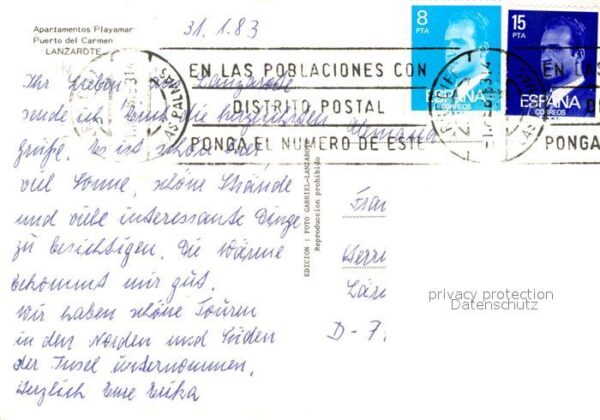 Apartamentos Playamar
Puerto del Carmen
LANZAROTE
31.1.83
8
PTA
ESPAÑA
CORREOS
15
PTA
ESPAÑA
CORREOS
EN LAS POBLACIONES CON
DISTRITO POSTAL
PONGA EL NUMERO DE ESTE
EN LA
DIS
PONGA
LAS PALMAS
Ihr Lieben von Lanzarote
sende ich Euch die herzlichsten
Grüße. Es ist schön hier,
viel Sonne, schöne Strände
und viele interessante Dinge
zu besichtigen. Die Wärme
bekommt mir gut.
Wir haben schöne Touren
in den Norden und Süden
der Insel unternommen.
Herzlich Eure Erika
EDICION : FOTO GABRIEL-LANZAROTE
Reproduccion prohibido
Frau
Herrn
D-7
privacy protection
Datenschutz